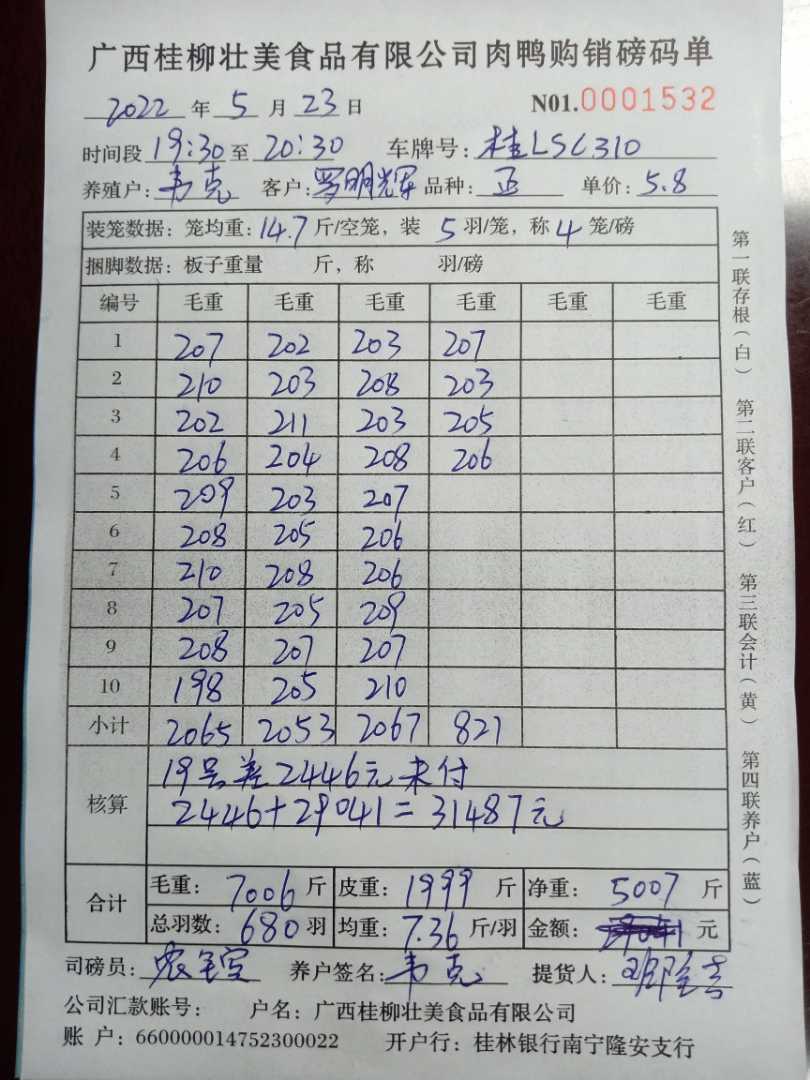 广西桂柳壮美食品有限公司肉鸭购销磅码单
2022 年 5 月 23 日 N01.0001532
时间段 19:30 至 20:30 车牌号: 桂LSC310
养殖户: 韦克 客户: 罗明辉 品种: 正 单价: 5.8
装笼数据: 笼均重: 14.7 斤/空笼, 装 5 羽/笼, 称 4 笼/磅
捆脚数据: 板子重量 斤, 称 羽/磅
编号 毛重 毛重 毛重 毛重 毛重 毛重
1 207 202 203 207
2 210 203 208 203
3 202 211 203 205
4 206 204 208 206
5 209 203 207
6 208 205 206
7 210 208 206
8 207 205 209
9 208 207 207
10 198 205 210
小计 2065 2053 2067 821
核算 19号差2446元未付
2446+29041=31487元
合计 毛重: 7006 斤 皮重: 1999 斤 净重: 5007 斤
总羽数: 680 羽 均重: 7.36 斤/羽 金额: 29041 元
司磅员: 养户签名: 韦克 提货人:
公司汇款账号: 户名: 广西桂柳壮美食品有限公司
账 户: 660000014752300022 开户行: 桂林银行南宁隆安支行
第一联存根(白) 第二联客户(红) 第三联会计(黄) 第四联养户(蓝)